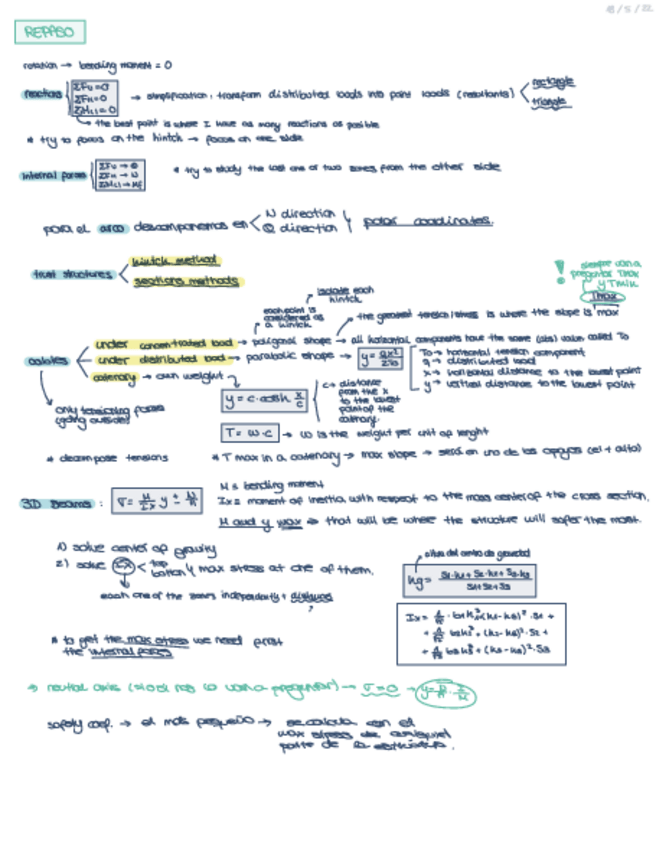 18/5/22
REPASO
rotation → bending moment = 0
reactions { ΣFv=0 ΣFH=0 ΣM(1)=0 → simplification: transform distributed loads into point loads (resultants) < rectangle triangle
→ the best point is where I have as many reactions as possible
* try to focus on the hintch → focus on one side
internal forces { ΣFv → Q ΣFH → N ΣM(1) → Mf
* try to study the last one or two zones from the other side
para el arco descomponemos en < N direction Q direction } polar coordinates.
trust structures < hintch method sections methods
! siempre van a preguntar Tmax y Tmin
Tmax
isolate each hintch
each point is considered as a hintch
the greatest tension/stress is where the slope is max
cables < under concentrated load → poligonal shape → all horizontal components have the same (abs) value called To
under distributed load → parabolic shape → y = qx²/2To
To → horizontal tension component
q → distributed load
x → horizontal distance to the lowest point
y → vertical distance to the lowest point
catenary → own weight
y = c·cosh x/c
c → distance from the x to the lowest point of the catenary.
only tensioning forces (going outside)
T = w·c → w is the weight per unit of lenght
* decompose tensions
* T max in a catenary → max slope → será en uno de los apoyos (el + alto)
3D Beams: σ = M/Ix y ± N/A
M is bending moment
Ix = moment of inertia with respect to the mass center of the cross section.
M and y max → that will be where the structure will safer the most.
1) solve center of gravity
2) solve Ix < top bottom } max stress at one of them.
each one of the zones independently +
altura del centro de gravedad
hg = S1·h1 + S2·h2 + S3·h3 / S1+S2+S3
Ix = 1/12 · b1h1³ + (h1-hg)² · S1 +
+ 1/12 b2h2³ + (h2-hg)² · S2 +
+ 1/12 b3h3³ + (h3-hg)² · S3
* to get the max stress we need first the internal forces
→ neutral axis (si o si nos lo van a preguntar) → σ=0 →
safety coef. → el más pequeño → se calcula con el max stress de cualquier parte de la estructura.